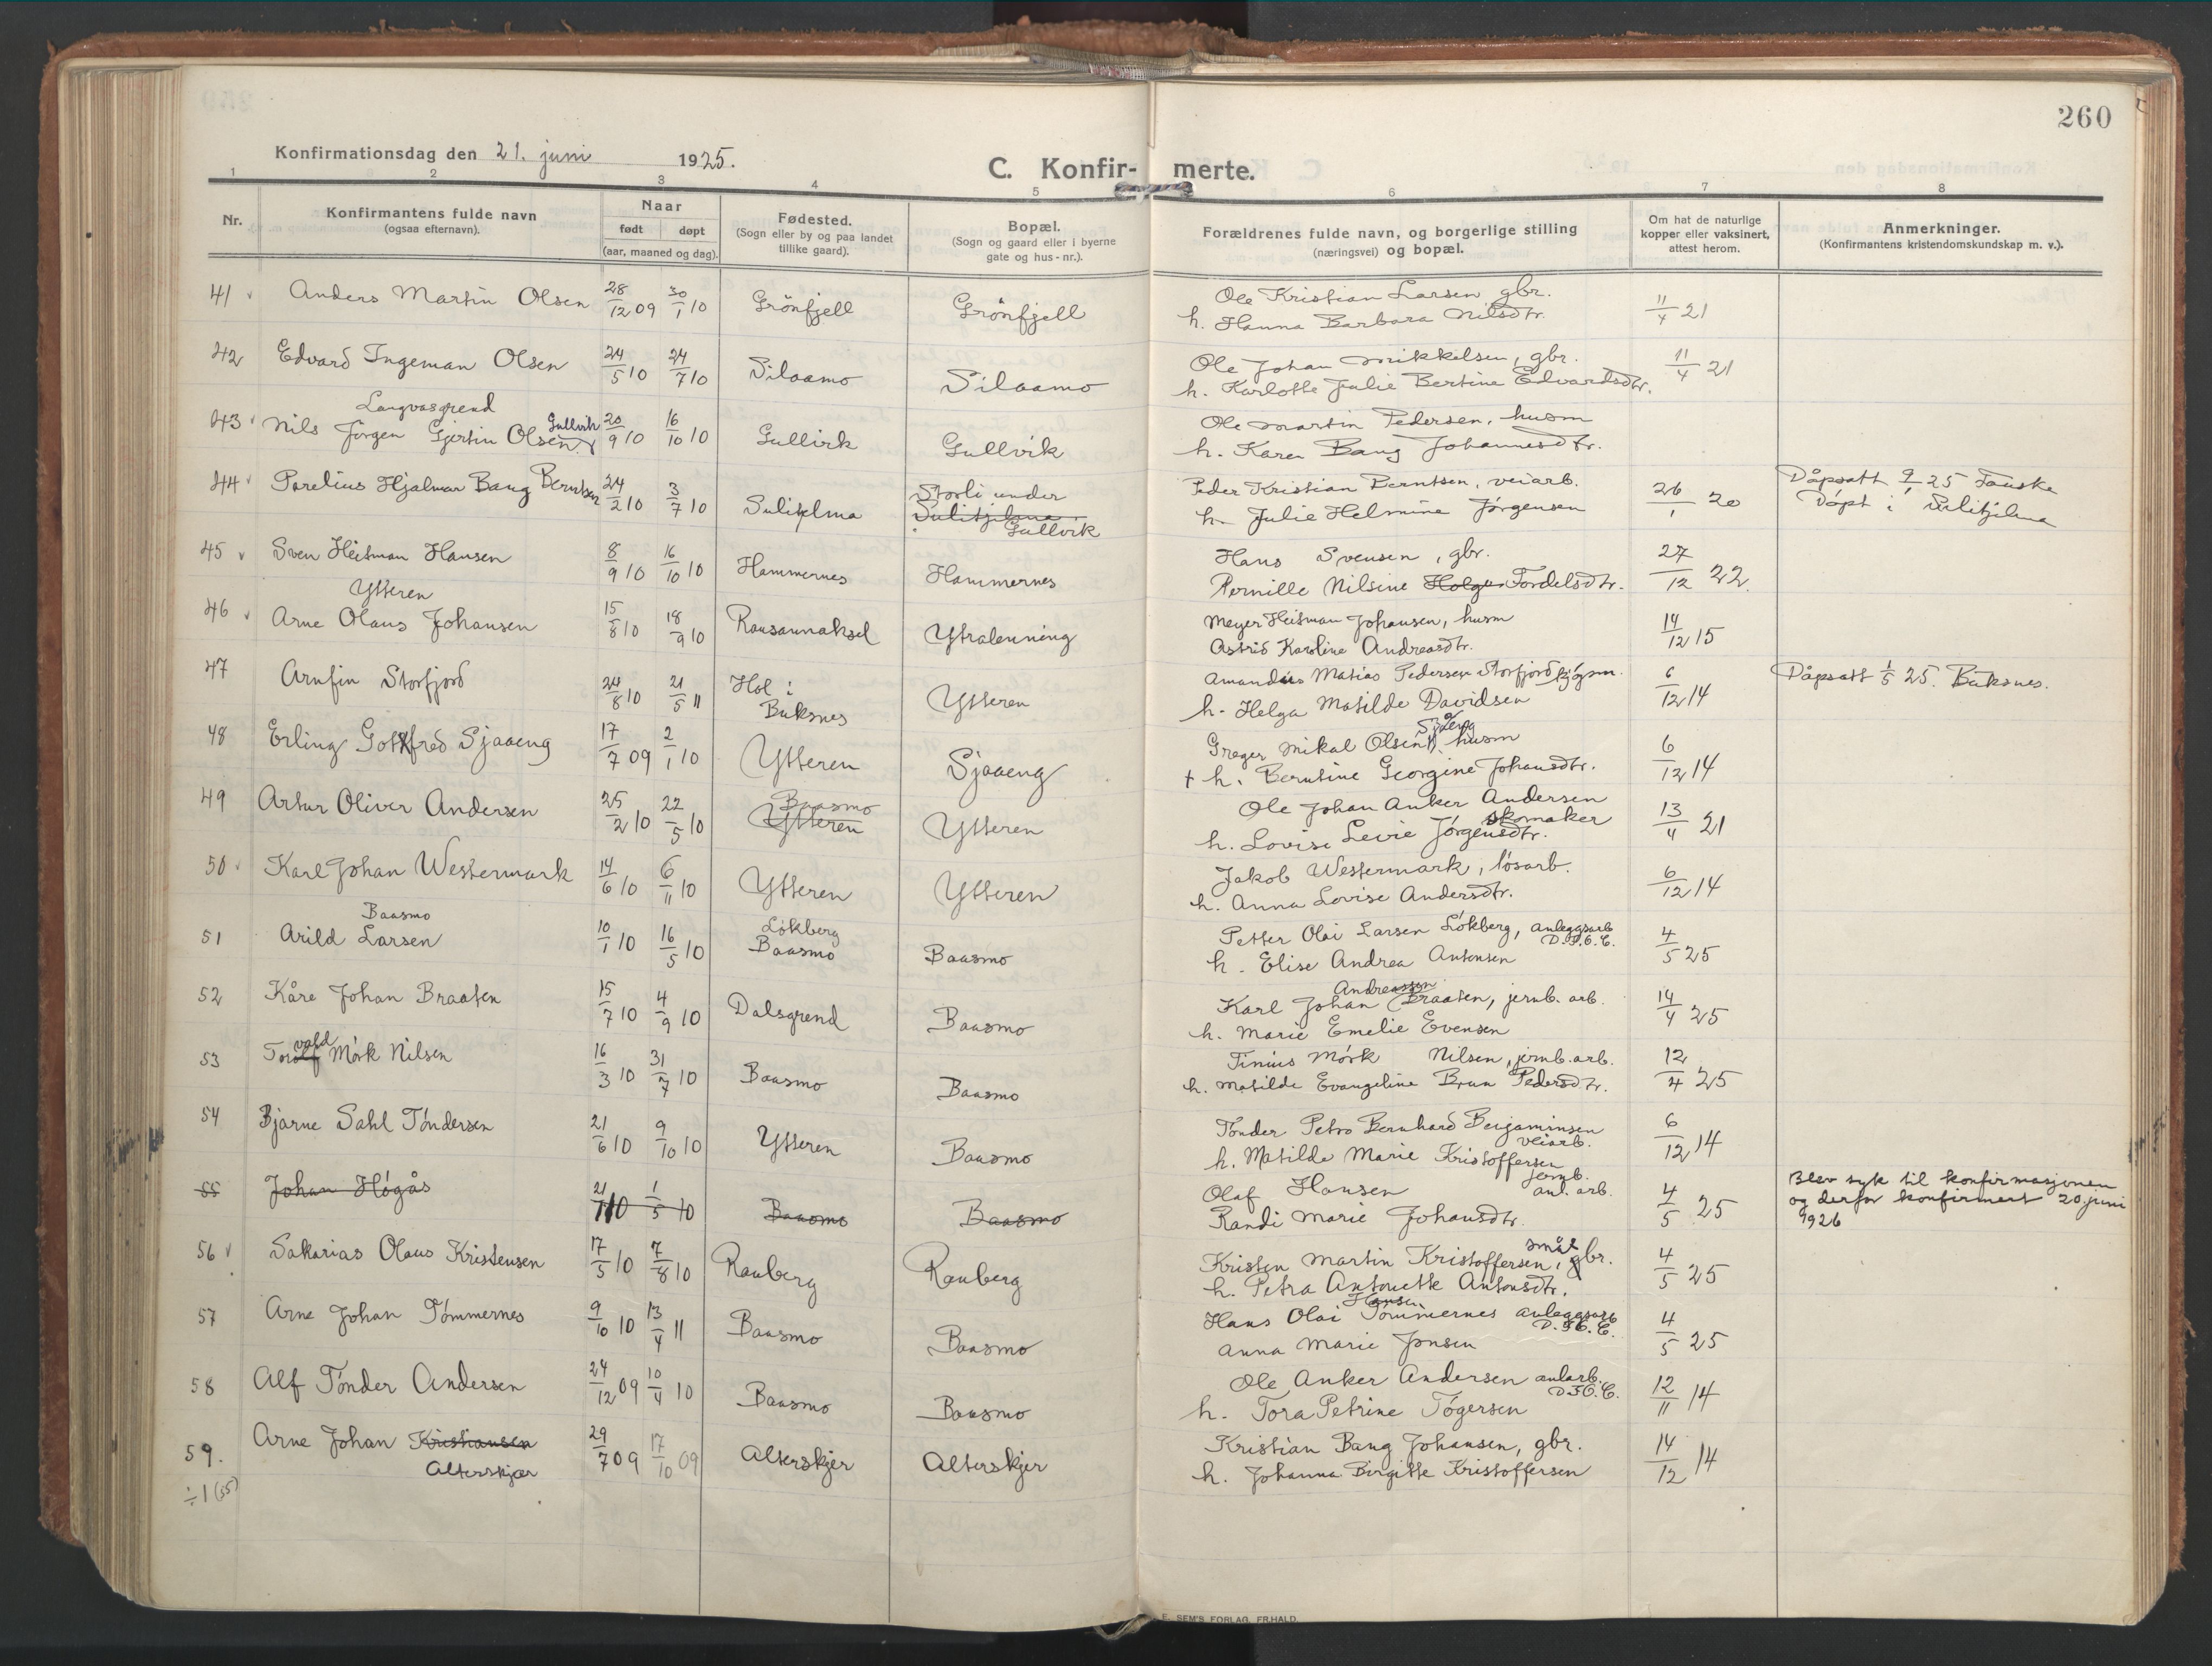 260
Konfirmationsdag den 21. juni 1925.
C. Konfir- merte.
1 2 3 4 5 6 7 8
Nr. Konfirmantens fulde navn (ogsaa efternavn). Naar født døpt (aar, maaned og dag). Fødested. (Sogn eller by og paa landet tillike gaard). Bopæl. (Sogn og gaard eller i byerne gate og hus-nr.). Forældrenes fulde navn, og borgerlige stilling (næringsvei) og bopæl. Om hat de naturlige kopper eller vaksinert, attest herom. Anmerkninger. (Konfirmantens kristendomskundskap m. v.).
41 Anders Martin Olsen 28/12 09 30/1 10 Grönfjell Grönfjell Ole Kristian Larsen gbr. 11/4 21
h. Hanna Barbara Nilsdtr.
42 Edvard Ingeman Olsen 24/5 10 24/7 10 Silaamo Silaamo Ole Johan Mikkelsen, gbr. 11/4 21
h. Karlotte Julie Bertine Edvardsdtr.
Langvasgrend
43 Nils Jørgen Gjertin Olsen Gullvik 20/9 10 16/10 10 Gullvik Gullvik Ole Martin Pedersen, husm
h. Karen Bang Johannesdtr.
44 Parelius Hjalmar Bang Berntsen 24/2 10 3/7 10 Sulitjelma Storli under Sulitjelma Gullvik Peder Kristian Berntsen, veiarb. 26/1 20 Dåpsatt 9/1 25 Fauske
h. Julie Helmine Jørgensen Døpt i Sulitjelma
45 Sven Heitman Hansen 8/9 10 16/10 10 Hammernes Hammernes Hans Svensen, gbr. 27/12 22.
Pernille Nilsine Holger Tordelsdtr.
Ytteren
46 Arne Olaus Johansen 15/8 10 18/9 10 Rausannaksel Ytralenning Meyer Heitman Johansen, husm 14/12 15
Astrid Karoline Andreasdtr.
47 Arnfin Storfjord 24/8 10 21/5 11 Hol i Buksnes Ytteren Amandus Matias Pedersen Storfjord kjøpm. 6/12 14 Dåpsatt 1/5 25. Buksnes.
h. Helga Matilde Davidsen
48 Erling Gottfred Sjaaeng 17/7 09 2/1 10 Ytteren Sjaaeng Greger Mikal Olsen Sjåeng husm 6/12 14
† h. Berntine Georgine Johansdtr.
49 Artur Oliver Andersen 25/2 10 22/5 10 Baasmo Ytteren Ytteren Ole Johan Anker Andersen skomaker 13/4 21
h. Lovise Levie Jørgensdtr.
50 Karl Johan Westermark 14/6 10 6/11 10 Ytteren Ytteren Jakob Westermark, løsarb. 6/12 14
h. Anna Lovise Andersdtr.
Baasmo
51 Arild Larsen 10/1 10 16/5 10 Løkberg Baasmo Baasmo Petter Olai Larsen Løkberg, anleggsarb D.F.O.C. 4/5 25
h. Elise Andrea Antonsen
52 Kåre Johan Braaten 15/7 10 4/9 10 Dalsgrend Baasmo Karl Johan Andreassen Braaten, jernb. arb. 14/4 25
h. Marie Emelie Evensen
53 Torolf vald Mörk Nilsen 16/3 10 31/7 10 Baasmo Baasmo Tinius Mörk Nilsen, jernb. arb. 12/4 25
h. Matilde Evangeline Brun Pedersdtr.
54 Bjarne Sahl Tøndersen 21/6 10 9/10 10 Ytteren Baasmo Tønder Petro Bernhard Benjaminsen veiarb. 6/12 14
h. Matilde Marie Kristoffersen
55 Johan Høgås 21/1 10 1/5 10 Baasmo Baasmo Olaf Hansen jernb. anl. arb. 4/5 25 Blev syk til konfirmasjonen
Randi Marie Johansdtr. og derfor konfirmert 20. juni
1926
56 Sakarias Olaus Kristensen 17/5 10 7/8 10 Rauberg Rauberg Kristen Martin Kristoffersen, småbr. 4/5 25
h. Petra Antonette Antonsdtr.
57 Arne Johan Tømmernes 9/10 10 13/4 11 Baasmo Baasmo Hans Olai Hansen Tømmernes anleggsarb D.F.O.C. 4/5 25
Anna Marie Jonsen
58 Alf Tønder Andersen 24/12 09 10/4 10 Baasmo Baasmo Ole Anker Andersen anlarb. D.F.O.C. 12/11 14
h. Tora Petrine Tøgersen
59. Arne Johan Kristiansen 29/7 09 17/10 09 Alterskjer Alterskjer Kristian Bang Johansen, gbr. 14/12 14
Alterskjær h. Johanna Birgitte Kristoffersen
÷1 (55)
E. SEM'S FORLAG, FR.HALD